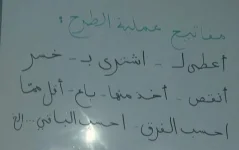 مفاتيح عملية الطرح :
أعطى لـ - اشترى بـ - خسر
أنقص - أخد منها - باع - أقل ممّا
احسب الفرق احسب الباقي ... الخ